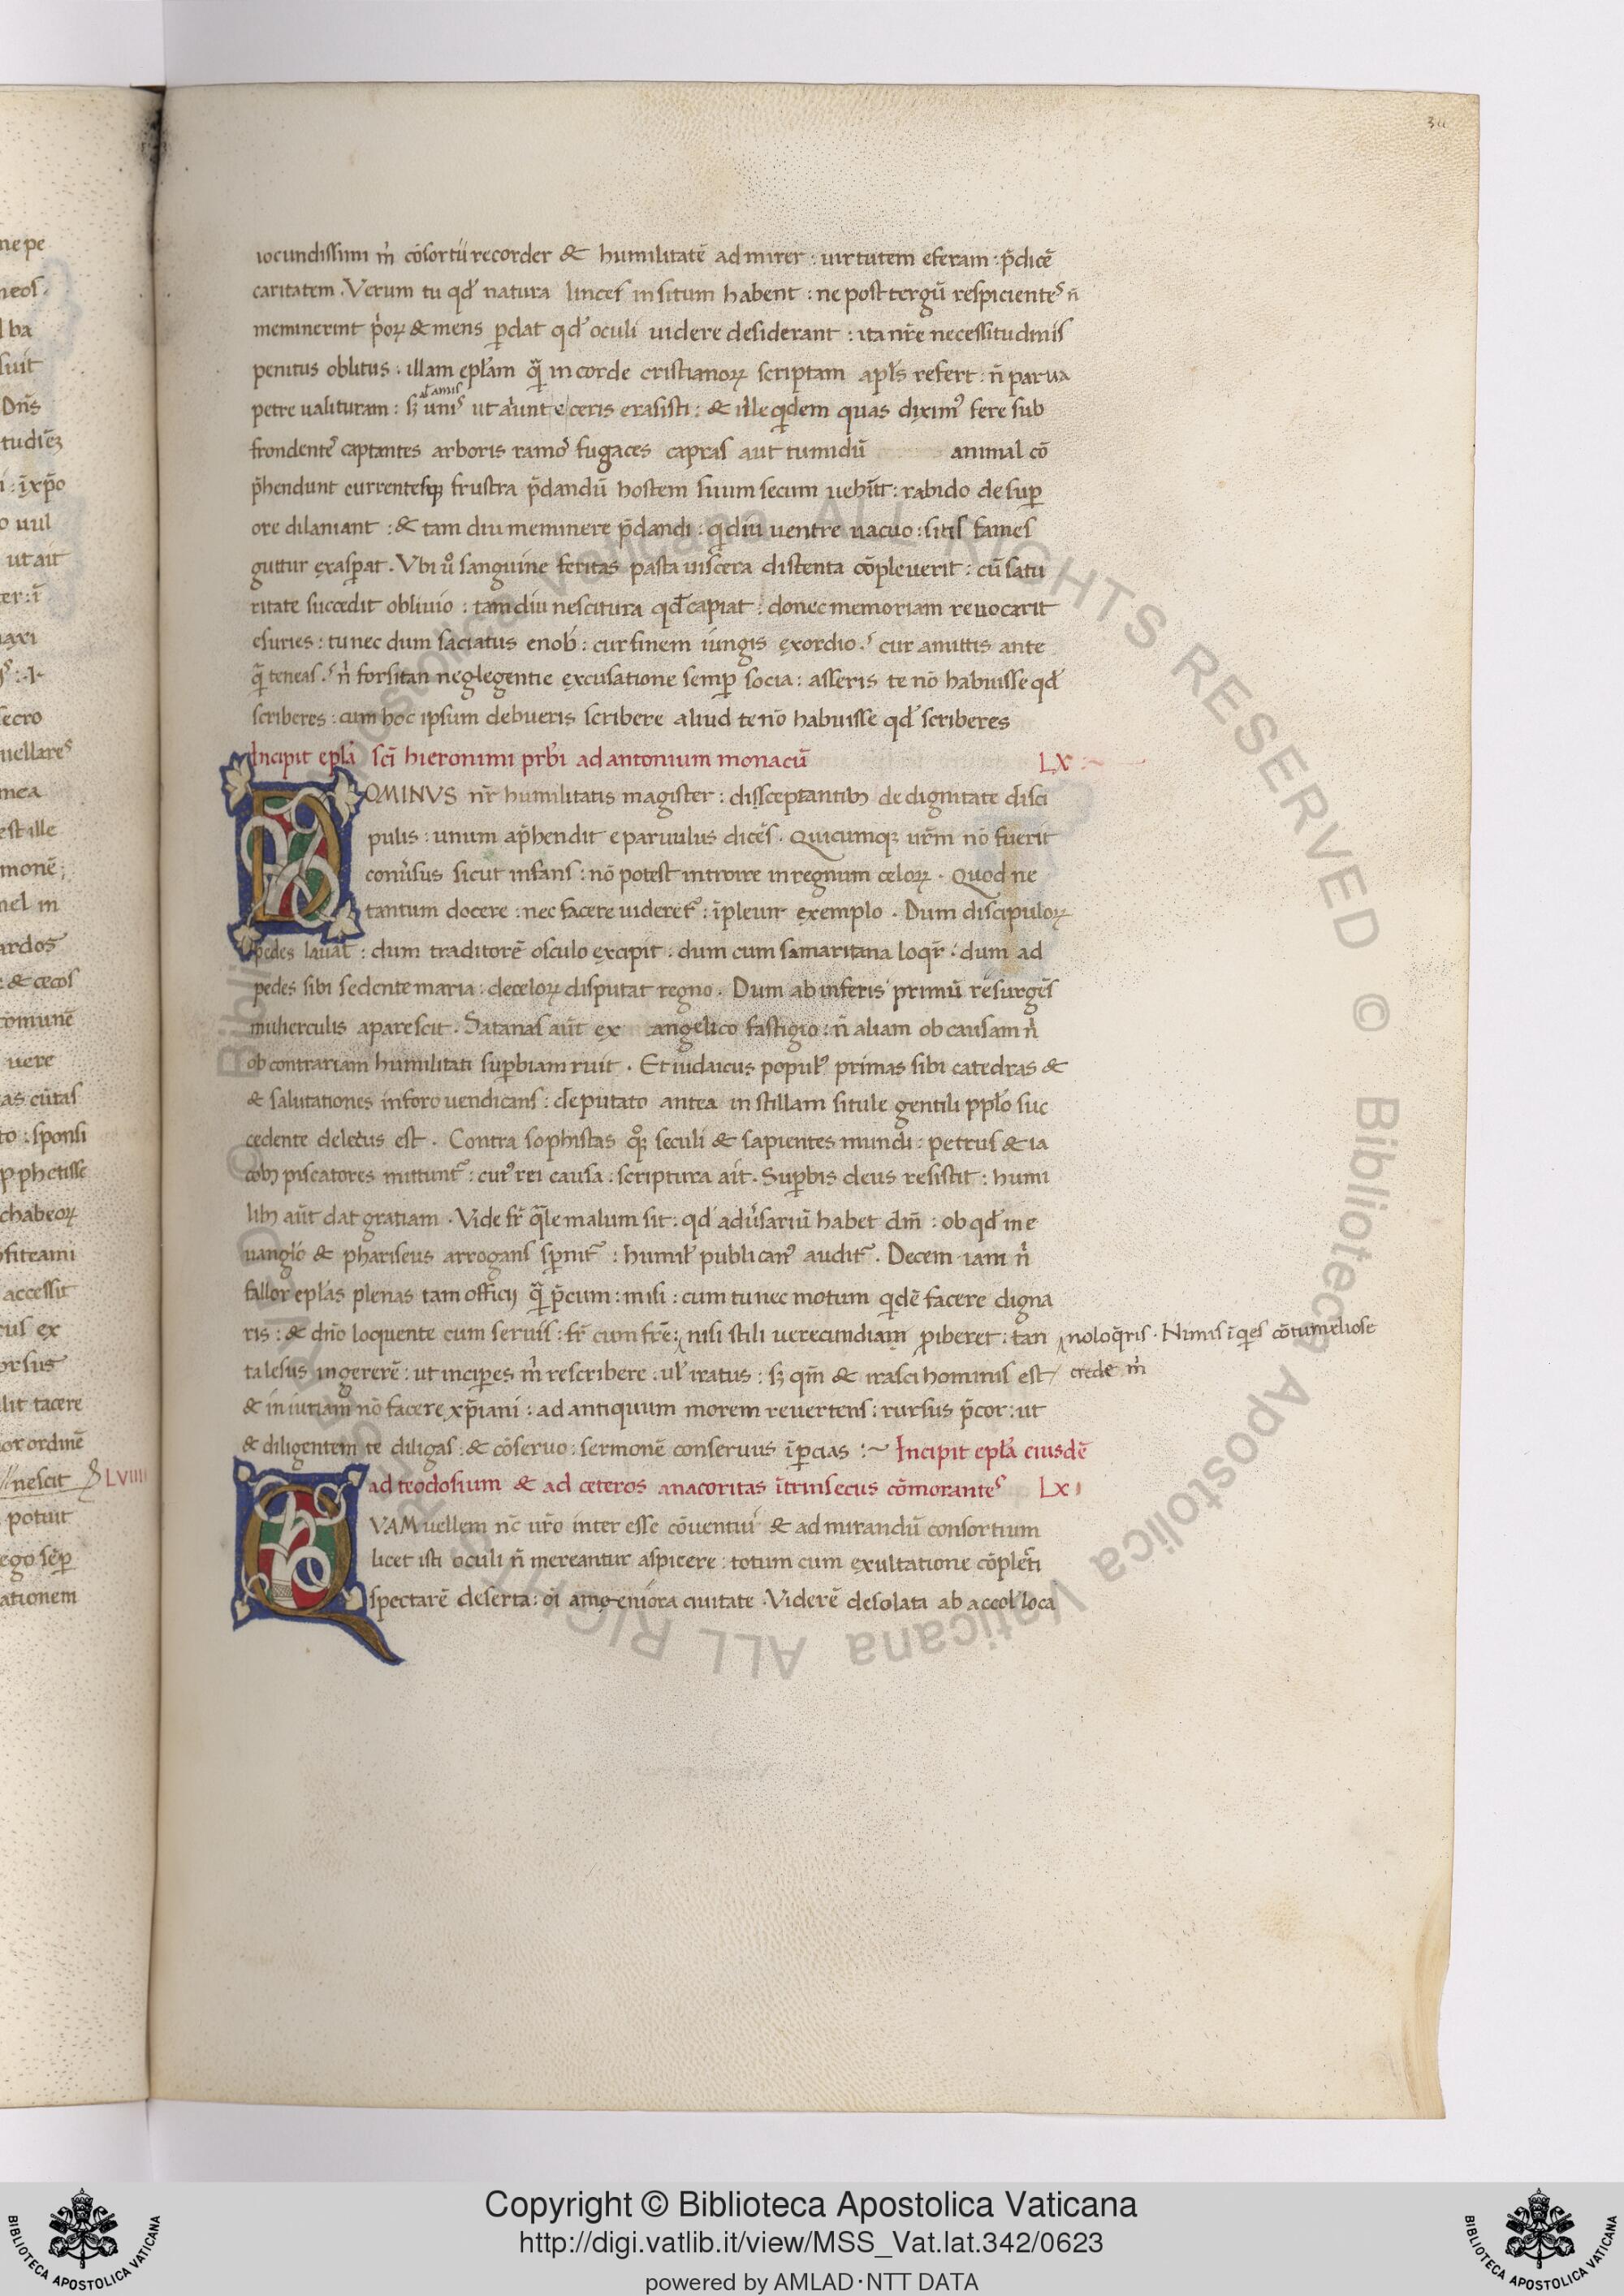 30
iocundissimi m̓ cōsortiī recorder & humilitatē admirer : uirtutem eferam : p̄dicē
caritatem . Verum tu qđ natura linces insitum habent : ne post tergū respicientes n̄
meminerint p̓orꝝ & mens ꝑdat qđ oculi uidere desiderant : ita nr̄e necessitudinis
penitus oblitus . illam epłam q̄ in corde cristianorꝝ scriptam apłs refert : n̄ parua
petre ualituram : sꝫ unis ut aiunt e ceris erasisti : & ille qdem quas diximꝰ fere sub
frondente captantes arboris ramo fugaces capras aut tumidū animal cō
p̄hendunt currentesqꝫ frustra p̄dandū hostem suum secum uehūt : rabido desuꝑ
ore dilaniant : & tam diu meminere p̄dandi : q̄diu uentre uacuo : sitis fames
guttur exasꝑat . Vbi uº sanguine feritas pasta uiscera distenta cōpleuerit : cū satu
ritate succedit obliuio : tam diu nescitura qđ capiat : donec memoriam reuocarit
esuries : tu nec dum saciatus e nob : cur finem iungis exordio ? cur amittis ante
q̄ teneas ? n̓ forsitan neglegentie excusatione semꝑ socia : asseris te nō habuisse qđ
scriberes : cum hoc ipsum debueris scribere aliud te nō habuisse qđ scriberes
Incipit epła sc̄i hieronimi prb̄i ad antonium monacū LX
DOMINVS nr̄ humilitatis magister : dissceptantibꝫ de dignitate disci
pulis : unum ap̄hendit e paruulus dicēs . Quicumqꝫ urm̄ nō fuerit
conu̓sus sicut infans : nō potest introire in regnum celorꝝ . Quod ne
tantum docere : nec facere uideret᷑ : īpleuit exemplo . Dum discipulorꝝ
pedes lauat : dum traditorē osculo excipit . dum cum samaritana loqr̄ . dum ad
pedes sibi sedente maria : de celorꝝ disputat regno . Dum ab inferis primū resurgēs
mulierculis aparescit . Satanas aūt ex angelico fastigio : n̄ aliam ob causam n̓
ob contrariam humilitati suꝑbiam ruit . Et iudaicus populꝰ primas sibi catedras &
& salutationes in foro uendicans : deputato antea in stillam situle gentili pplo suc
cedente deletus est . Contra sophistas qꝫ seculi & sapientes mundi : petrus & ia
cobꝫ piscatores mittunt᷑ : cuiꝰ rei causa : scriptura ait . Suꝑbis deus resistit : humi
libꝫ aūt dat gratiam . Vide fr̄ q̄le malum sit : qđ adu̓sariū habet dm̄ : ob qđ in e
uanglo & phariseus arrogans sꝑnit᷑ : humił publicanꝰ audit᷑ . Decem iam n̓
fallor epłas plenas tam officij q̄ p̄cum : misi : cum tu nec motum qdē facere digna
ris : & dn̄o loquente cum seruis : fr̄ cum fre : nisi stili uerecundiam ꝓhiberet : tan
noloq̄ris . Nimis īqes cōtumeliose
ta lesus ingererē : ut inciꝑes m̓ rescribere : uł iratus : sꝫ qm̄ & irasci hominis est
crede m̓
& iniuriam nō facere xp̄iani : ad antiquum morem reuertens : rursus p̄cor : ut
& diligentem te diligas : & cōseruo : sermonē conseruus īꝑcias :~ Incipit epła eiusdē
ad teodosium & ad ceteros anacoritas ītrinsecus cōmorantes LXI
QVAM uellem nc̄ uro inter esse cōuentui & admirandū consortium
licet isti oculi n̄ mereantur aspicere : totum cum exultatione cōplecti
spectarē deserta : oī amęniora ciuitate . Viderē desolata ab accol loca